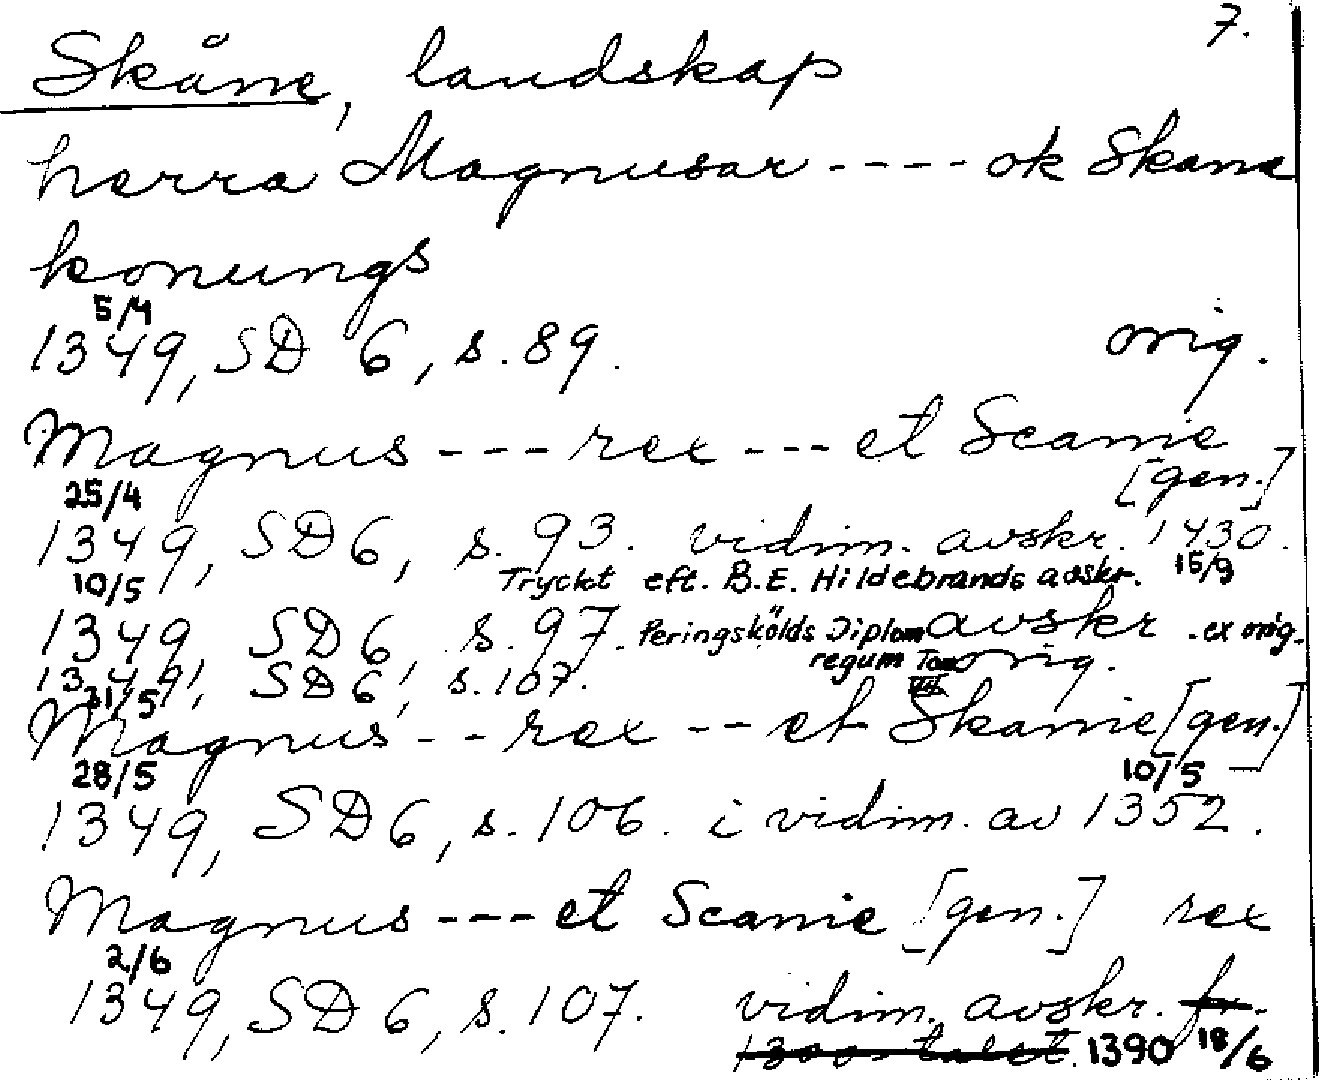 7.
Skåne, landskap
herra Magnusar ---- ok Skane
konungs
5/4
1349, SD 6, s. 89. orig.
Magnus --- rex --- et Scanie
[gen.]
25/4
1349, SD 6, s. 93. vidim. avskr. 1430.
10/5 Tryckt eft. B.E. Hildebrands avskr. 15/9
1349, SD 6, s. 97. Peringskölds Diplom avskr. ex orig.
regum Tom VII
1349, SD 6, s. 107. orig.
31/5
Magnus -- rex -- et Skanie [gen.]
28/5 10/5
1349, SD 6, s. 106. i vidim. av 1352.
Magnus --- et Scanie [gen.] rex
2/6
1349, SD 6, s. 107. vidim. avskr. fr.
1300-talet. 1390 18/6